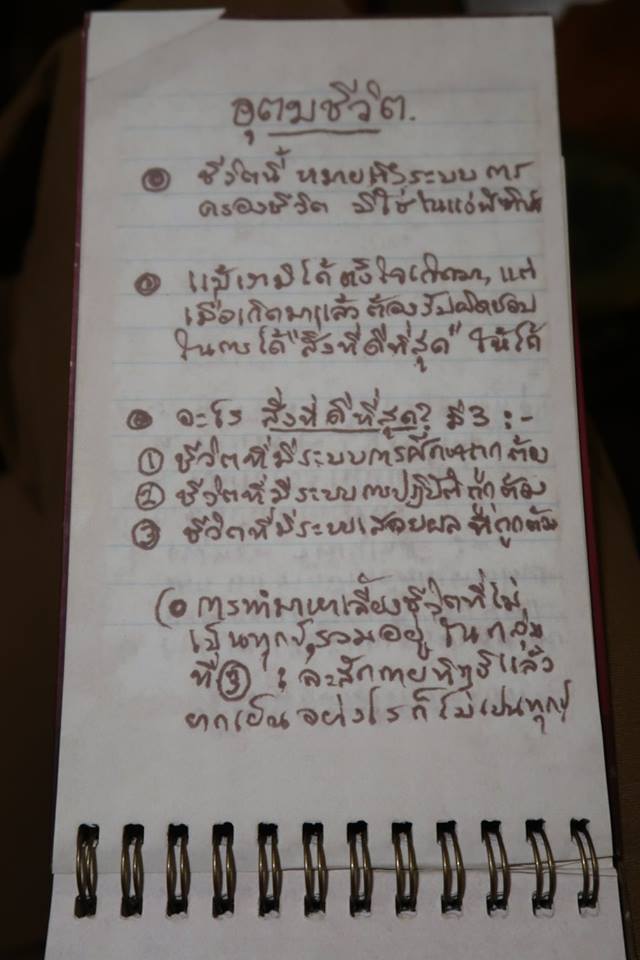 อุตมชีวิต.
ชีวิตนี้ หมายถึงระบบการ
ครองชีวิต มิใช่ในแง่
แม้เรามิได้ตั้งใจเกิดมา, แต่
เมื่อเกิดมาแล้ว ต้องรับผิดชอบ
ในการได้ "สิ่งที่ดีที่สุด" ให้ได้
อะไร สิ่งที่ดีที่สุด? มี 3 :-
① ชีวิตที่มีระบบการศึกษาถูกต้อง
② ชีวิตที่มีระบบการปฏิบัติถูกต้อง
③ ชีวิตที่มีระบบเสวยผลที่ถูกต้อง
(การทำมาหาเลี้ยงชีวิตที่ไม่
เป็นทุกข์, รวมอยู่ในกลุ่ม
ที่ ③ : ละสักกายทิฏฐิแล้ว
ยากเย็นอย่างไรก็ไม่เป็นทุกข์